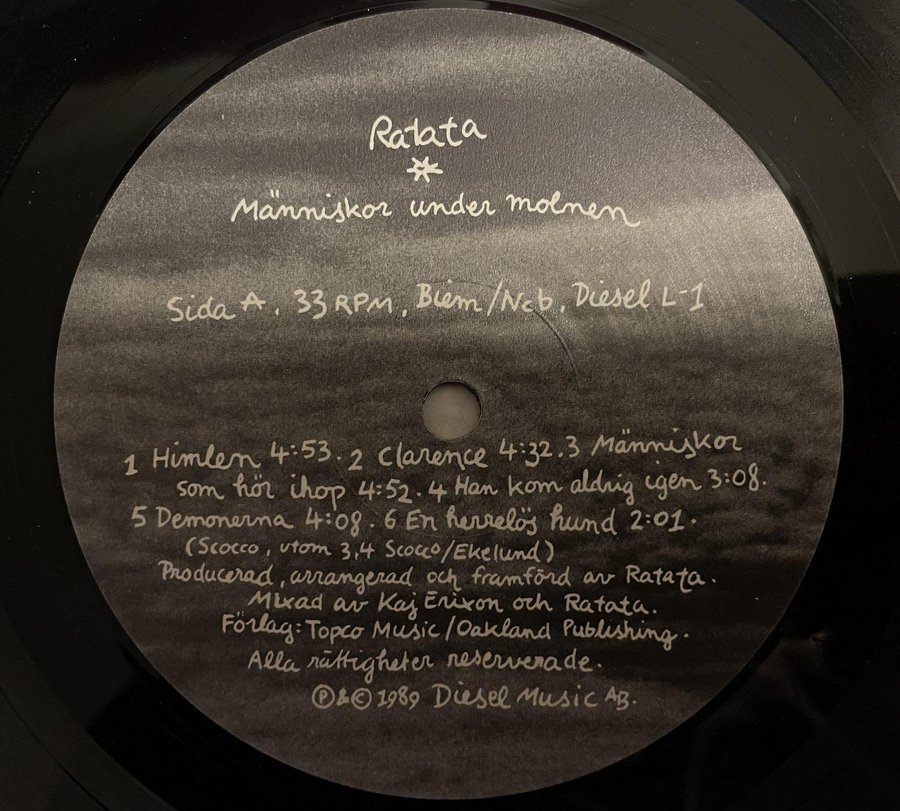 Ratata
Människor under molnen
Sida A. 33 RPM. Biem/Ncb. Diesel L-1
1 Himlen 4:53. 2 Clarence 4:32. 3 Människor
som hör ihop 4:52. 4 Han kom aldrig igen 3:08.
5 Demonerna 4:08. 6 En herrelös hund 2:01.
(Scocco, utom 3,4 Scocco/Ekelund)
Producerad, arrangerad och framförd av Ratata.
Mixad av Kaj Erixon och Ratata.
Förlag: Topco Music/Oakland Publishing.
Alla rättigheter reserverade.
℗&© 1989 Diesel Music AB.